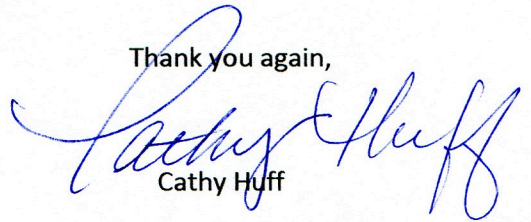 Thank you again,
Cathy Huff
Cathy Huff